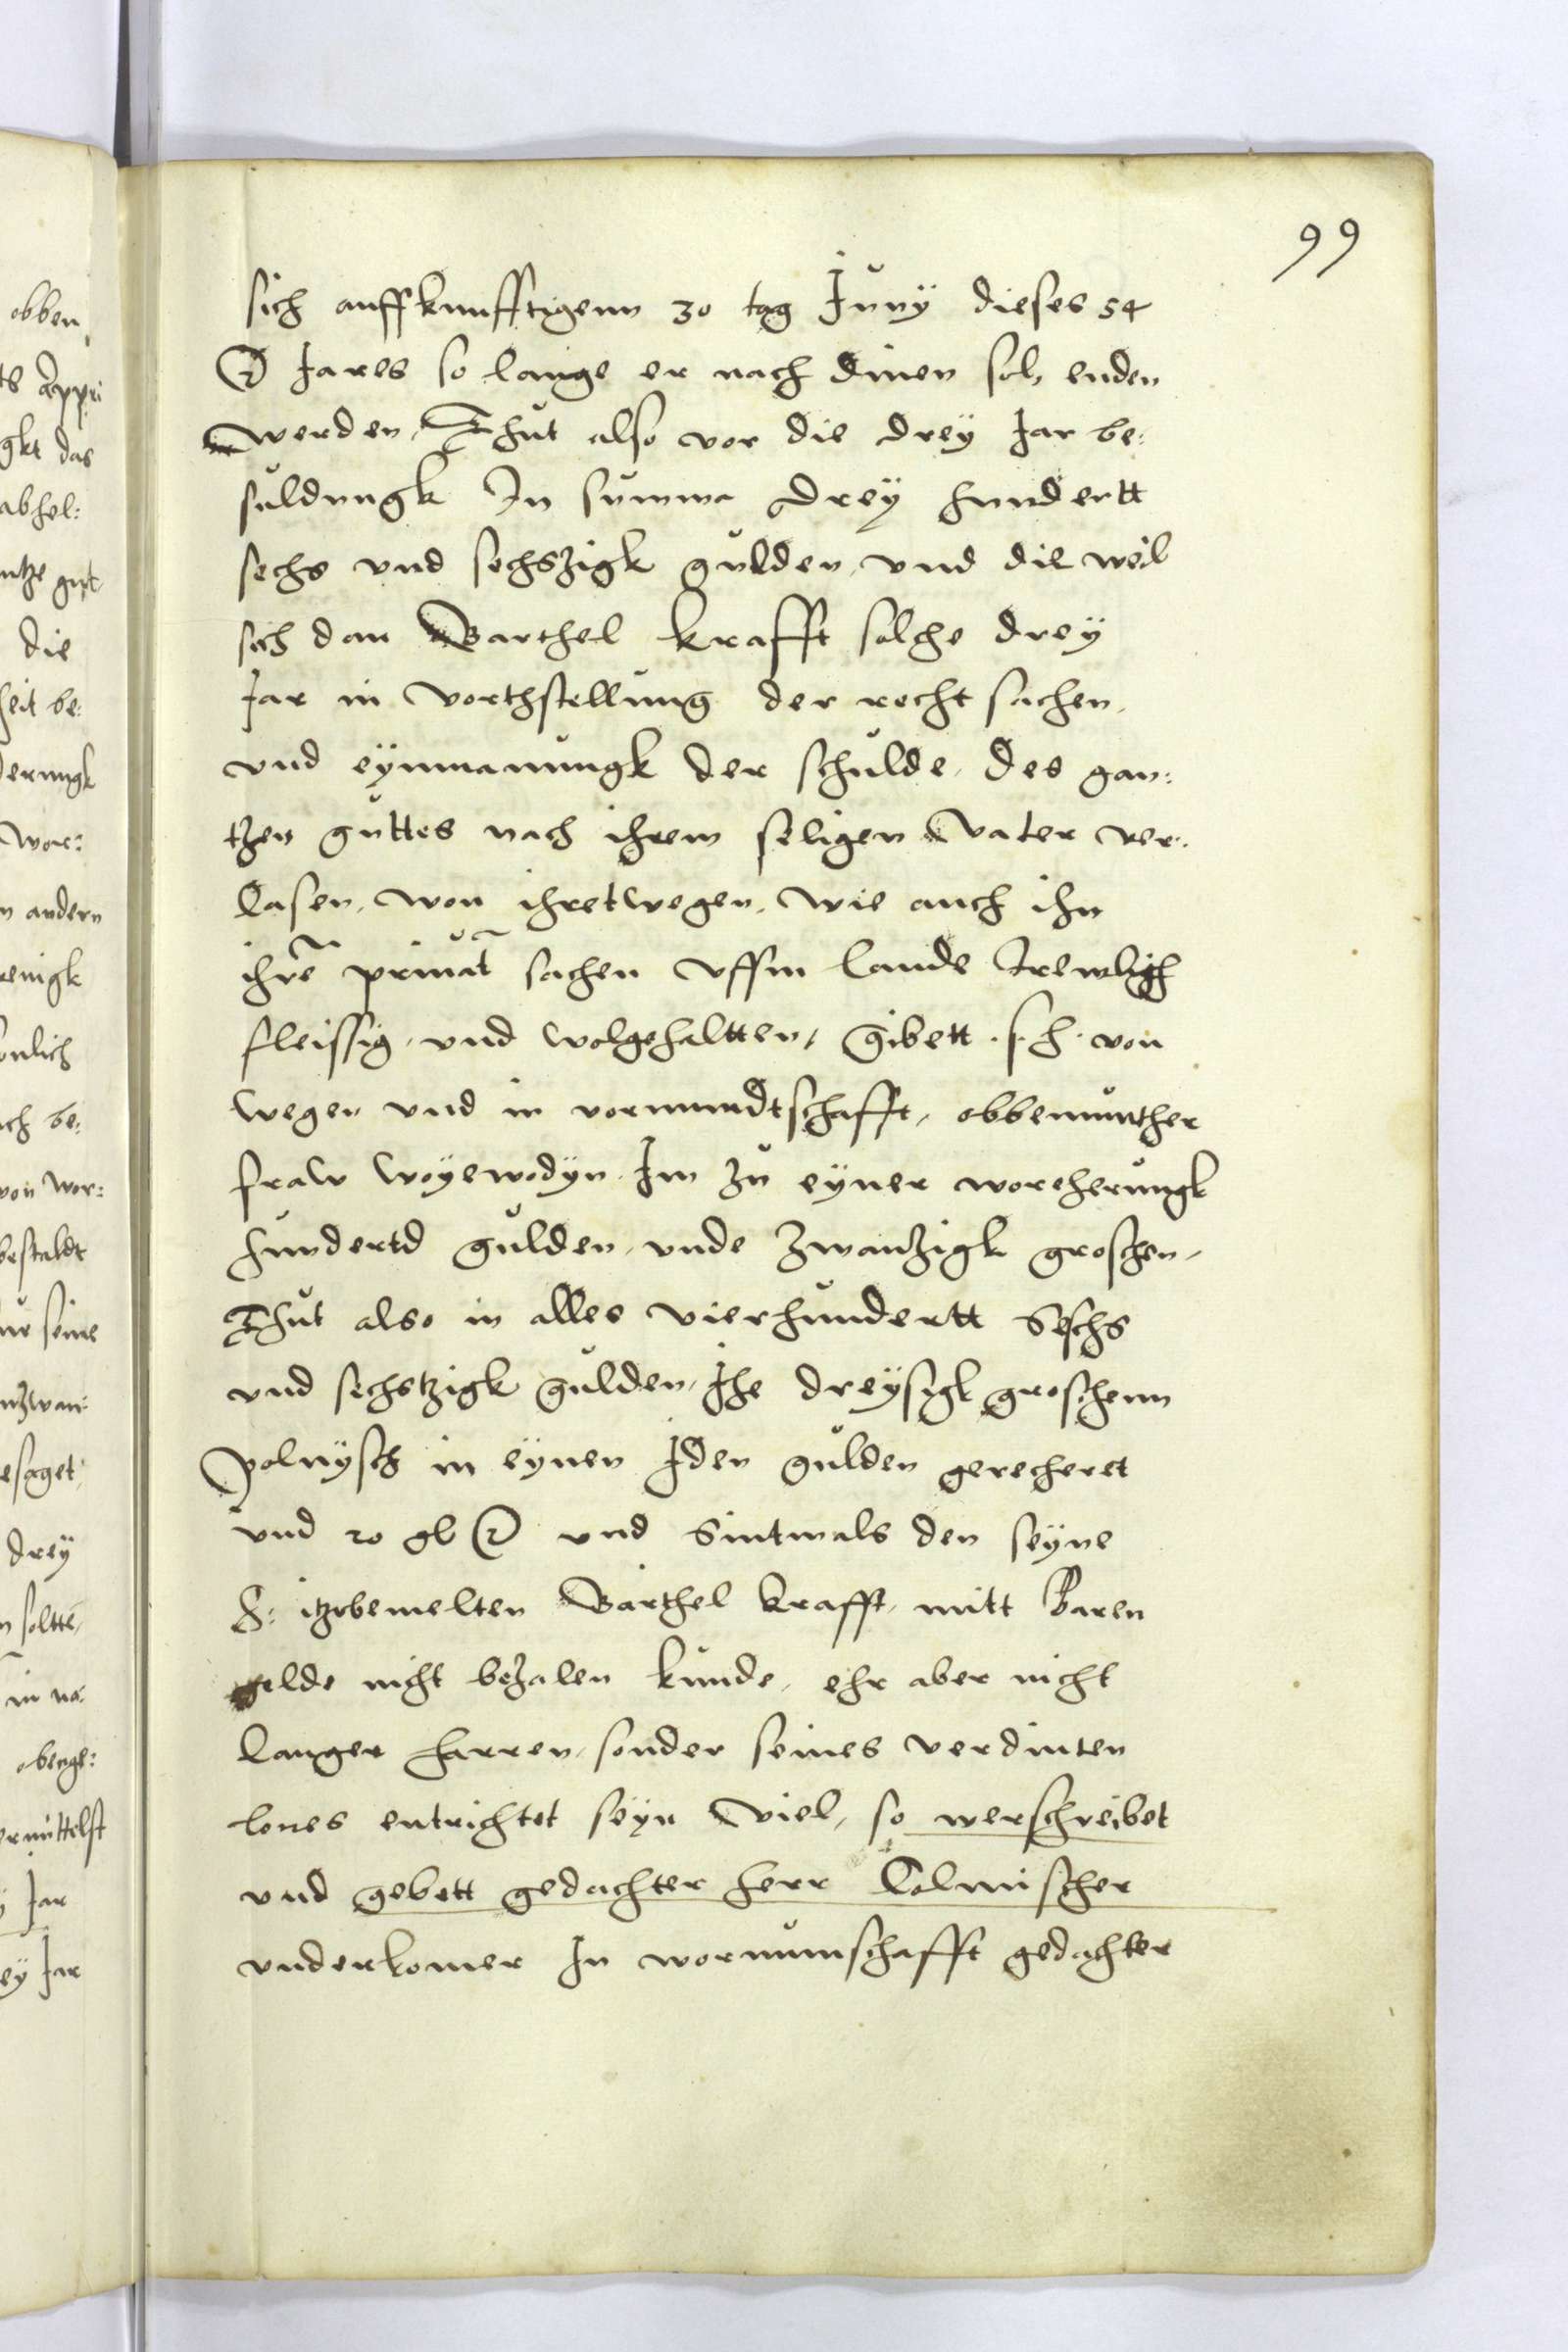 99
sich auffkunfftigenn 30 tag Juny dieses 54
Jares so lange er nach dinen sol, enden
werden, Thut also vor die drey Jar be:
suldungk In summa drey hundertt
sechs vnd sechszigk gulden, vnd die weil
sich dan Barthel Krafft solche drey
Jar in vorthstellung der recht sachen,
vnd eynmanungk der schulde, des gan:
tzen guttes nach ihrem seligen Vater ver:
lasen, won ihretwegen, wie auch ihn
ihre privat sachen vffm lande trewlich
fleissig, vnd wolgehaltten, gibett .s.h. von
wegen vnd in vormundtschafft, obbemunther
fraw woyewodyn Im zu eyner woreherungk
hundertd gulden, vnde zwanzigk groschen,
Thut also in alles vierhundertt Sechs
vnd sechstzigk gulden, Jhe dreysigk groschenn
polnysch in eynen Jden gulden gerecheret
vnd 20 gl vnd Sintmals den seyne
H: itzobemelten Barthel Krafft, mitt Baren
gelde nicht bezalen kunde, ehr aber nicht
langer harren, sonder seines verdinten
lones entrichtet seyn viel, so werschreibet
vnd gebett gedachter herr Colmischer
vnderkomer In wormumschafft gedachter
obben
gkt das
abhel:
die
heit be:
wor:
n andern
von wor:
bestaldt
drey
in na:
obenge:
ermittelst
Jar
ey Jar